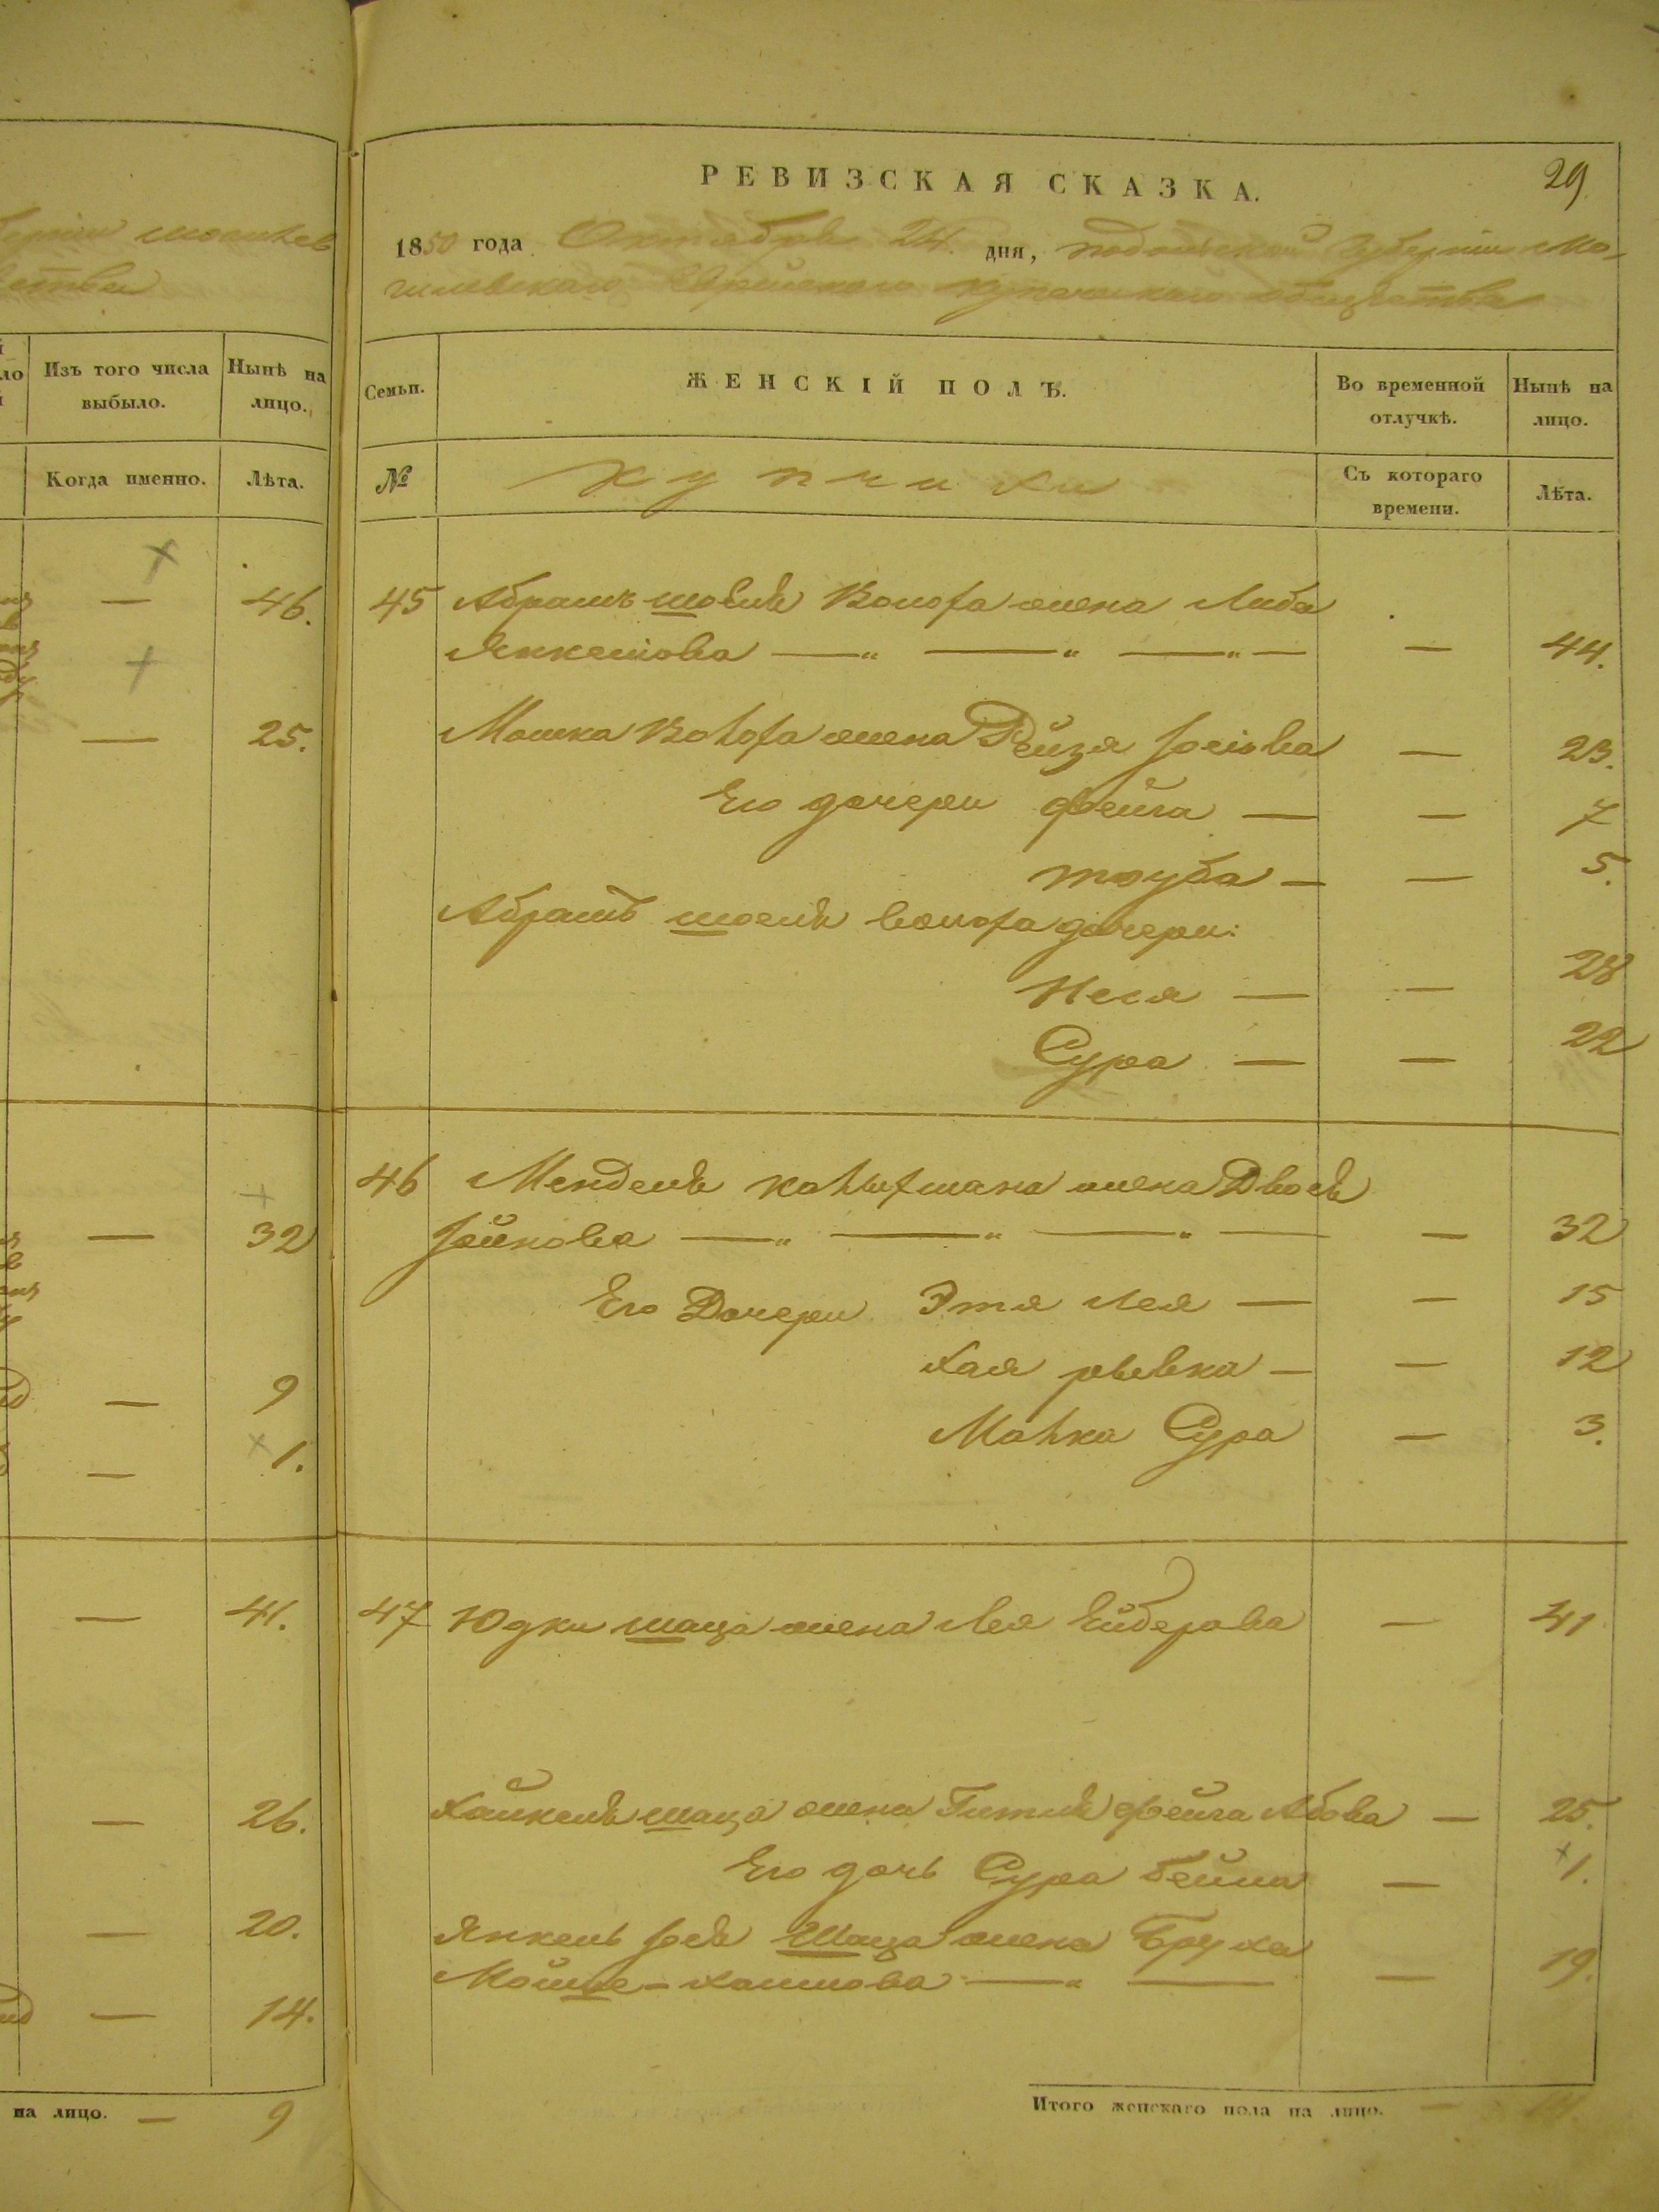 РЕВИЗСКАЯ СКАЗКА.
29
1850 года Октября 24. дня, подольской Губерніи Мо-
гилевскаго Еврейского купеческого общества
Изъ того числа выбыло.
Нынѣ на лицо.
Когда именно.
Лѣта.
Семьи.
ЖЕНСКІЙ ПОЛЪ.
Во временной отлучкѣ.
Нынѣ на лицо.
№
Купчихи
Съ котораго времени.
Лѣта.
— 46.
— 25.
— 32
— 9
— 1.
— 41.
— 26.
— 20.
— 14.
на лицо. — 9
45 жена Либа
Янкелiова — — 44.
Мошка жена Рейзя Iосiова — 23.
Его дочери Фейга — — 7
тоуба — — 5.
дочери:
Неся — — 28
Сура — — 22
46 Менделя жена Двося
Iойнова — — 32
Его Дочери Этя Лея — — 15
Хая рывка — — 12
Малка Сура — 3.
47 Юдки шаца жена Лея Ейдерова — 41
Хайкеля шаца жена Гитля фейга Абова — 25.
Его дочь Сура бейла — 1.
Янкель Iось Шаца жена Бруха
Мойше-хаимова — — 19.
Итого женскаго пола на лицо. —